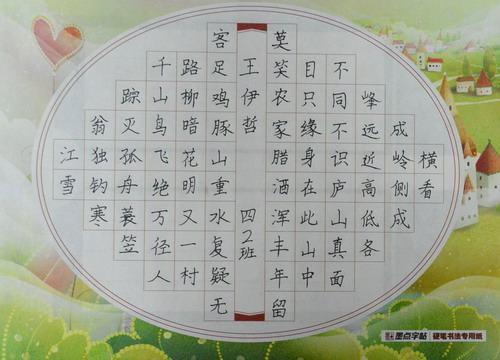 横看
成岭侧成
峰远近高低各
不同不识庐山真面
目只缘身在此山中
莫笑农家腊酒浑丰年留
王伊哲 四2班
客足鸡豚山重水复疑无
路柳暗花明又一村
千山鸟飞绝万径人
踪灭孤舟蓑笠
翁独钓寒
江雪
墨点字帖 硬笔书法专用纸